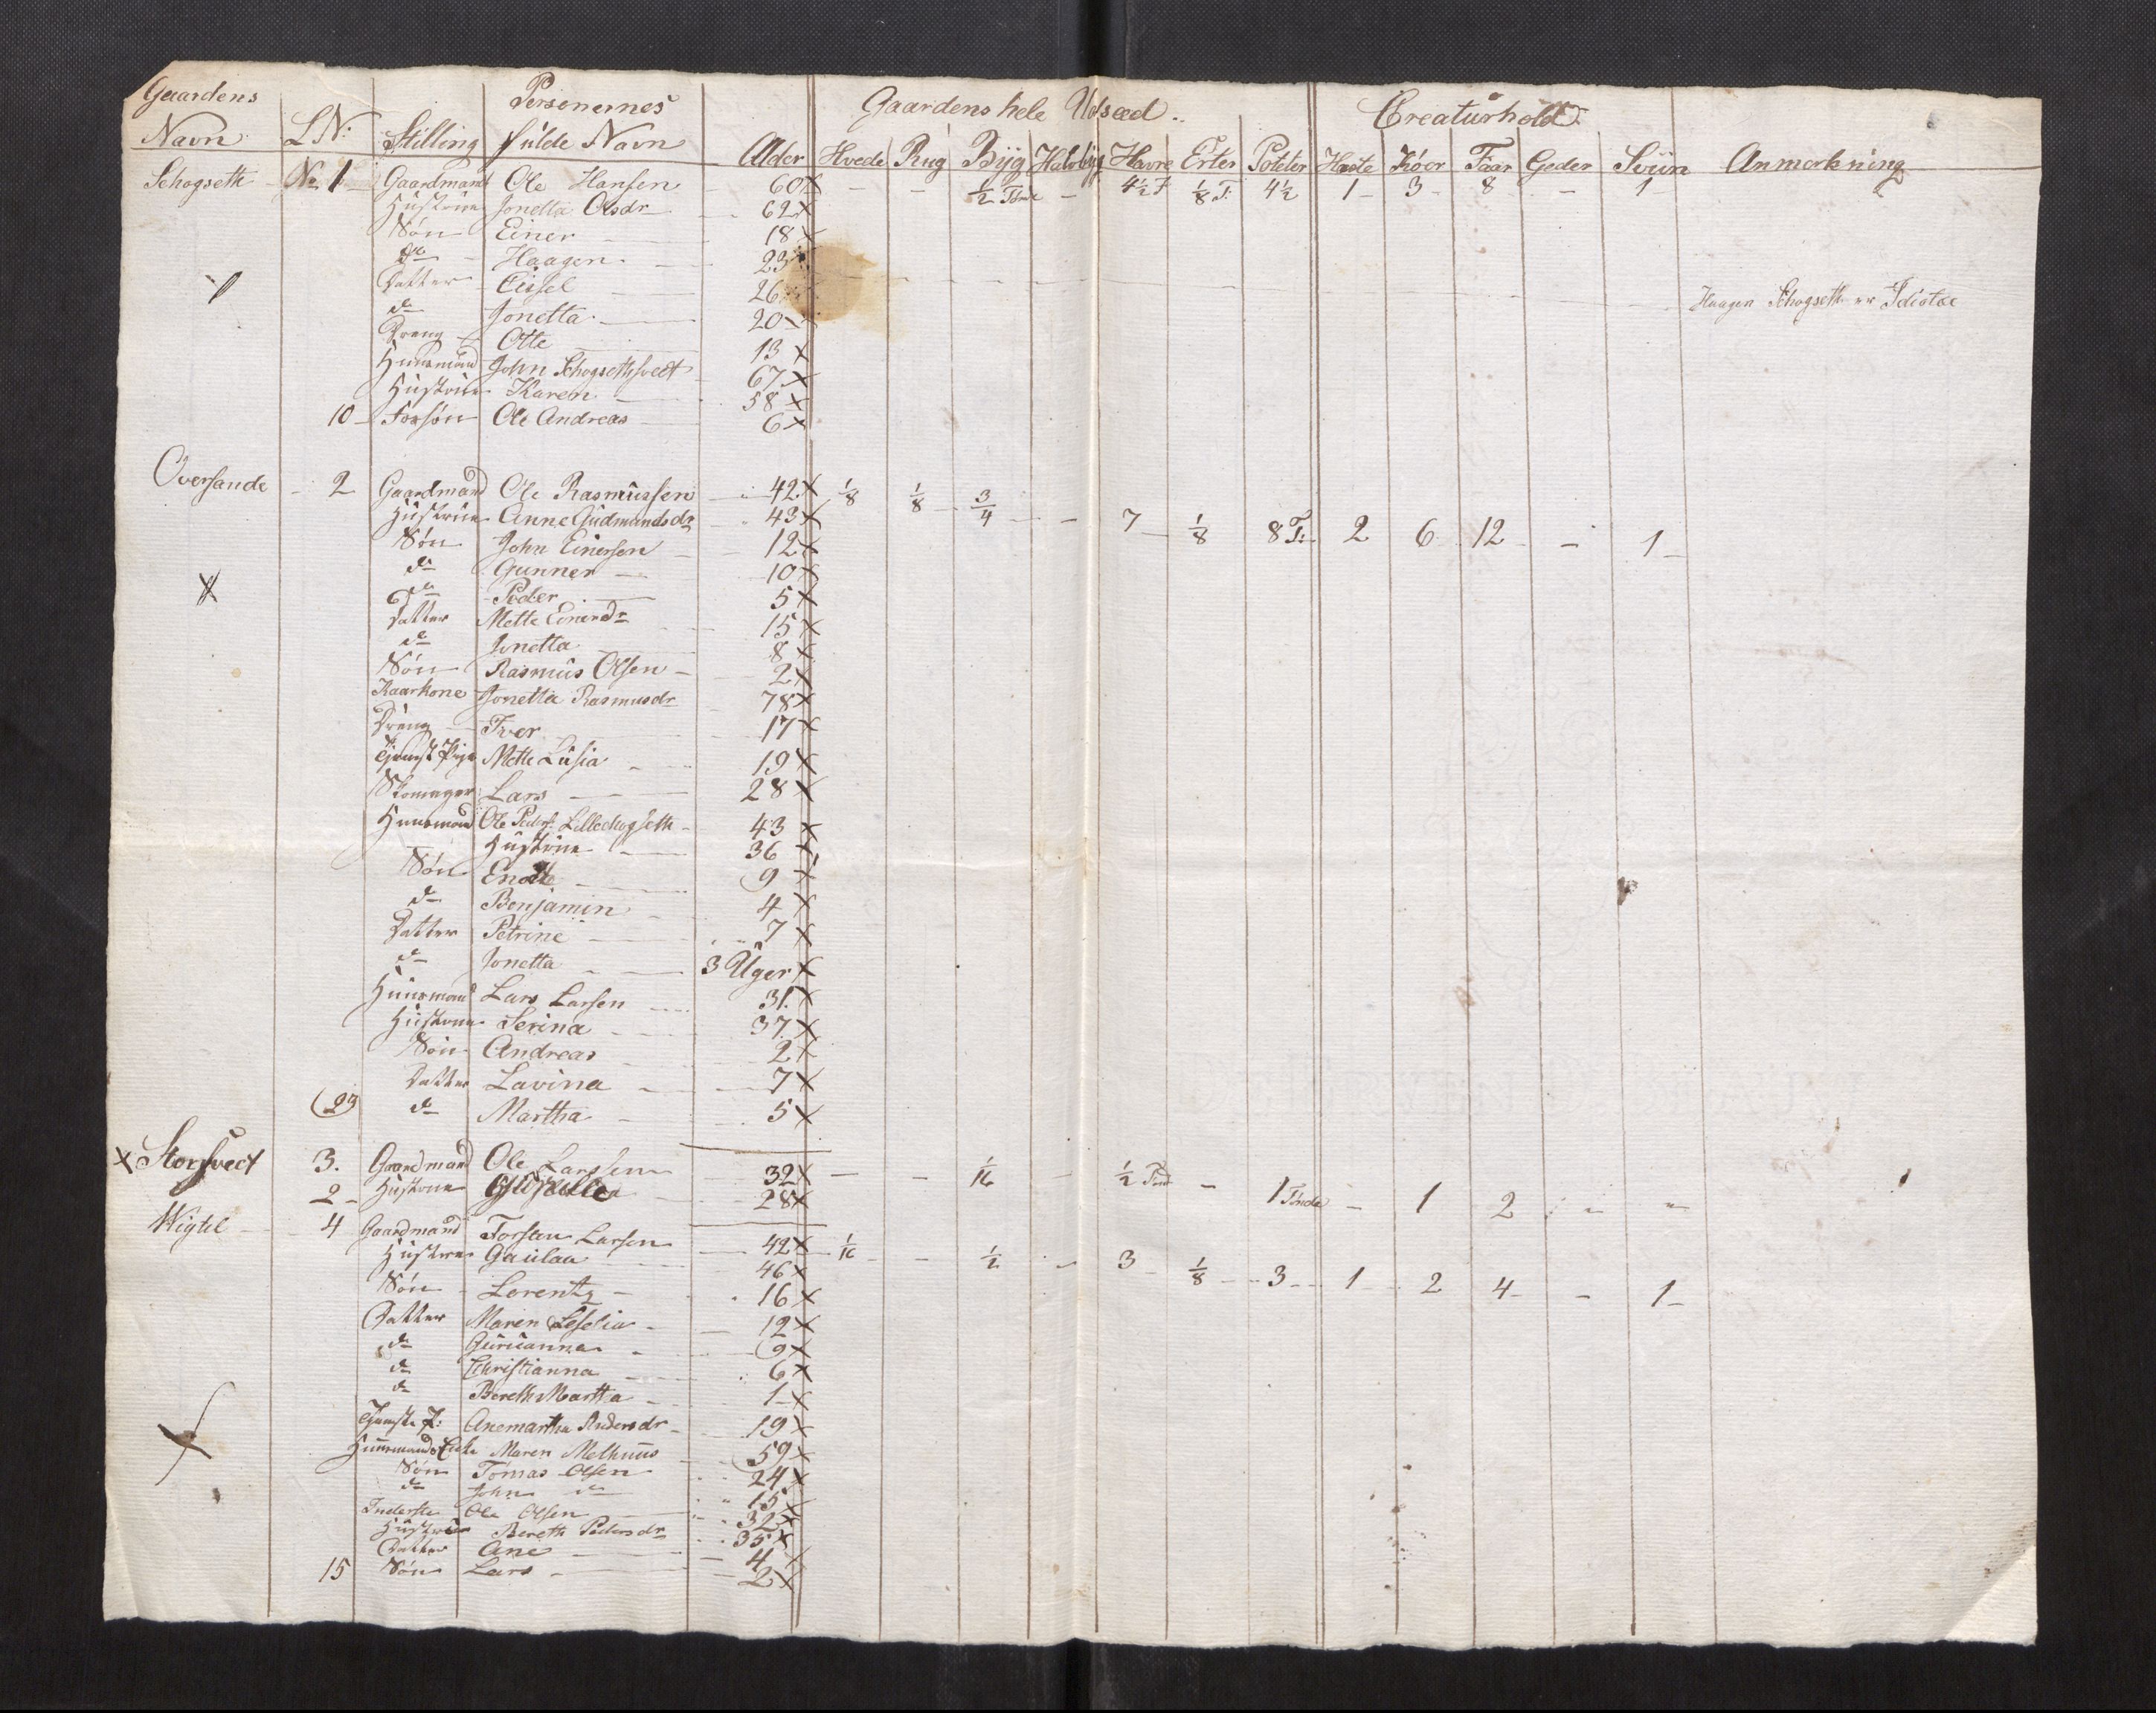 Gaardens Personernes Gaardens hele Udsæd Creaturhold
Navn L.N: Stilling fulde Navn Alder Hvede Rug Byg Havre Erter Poteter Heste Kóer Faar Geder Sviin Anmerkning
Schogseth No 1 Gaardmand Ole Hansen 60 x - - 1/2 Tønde - 4 1/2 T 1/8 T: 4 1/2 1 3 8 - 1
Hustrue Jonetta Olsdr 62 x
Søn Einer 18 x
do Haagen 23 Haagen Schogseth er Idiotæ
Datter Cissel 26
do Jonetta 20
Dreng Otte 13 x
Huusmand John Schogsethsvedt 67 x
Hustrue Karen 58 x
10 Ole Andreas 6 x
Oversande 2 Gaardmand Ole Rasmussen 42 x 1/8 1/8 3/4 - 7 1/8 8 T: 2 6 12 - 1
Hustrue Anne Gudmundsdr 43 x
Søn John Einersen 12 x
do Gunner 10 x
do Peder 5 x
Datter Mette Einersdr 15 x
do Jonetta 8 x
Søn Rasmus Olsen 2 x
Kaarkone Jonetta Rasmusdr 78 x
Dreng Iver 17 x
Mette Lusia 19 x
Skomager Lars 28 x
Huusmand Ole Peders. Lilleschogseth 43 x
Hustrue 36 x
Søn 9 x
do Benjamin 4 x
Datter Petrine 7 x
do Jonetta 3 Uger x
Huusmand Lars Larsen 31 x
Hustrue Serina 37 x
Søn Andreas 2 x
Datter Lavina 7 x
23 do Martha 5 x
x Storsvedt 3. Gaardmand Ole Larssen 32 x - - 1/16 - 1/2 Tønde - 1 Tønde - 1 2 - -
2 Hustrue 28 x
Wigtil 4 Gaardmand Torsten Larsen 42 x 1/16 - 1/2 - 3 1/8 3 1 2 4 - 1
Hustrue Gaulaa 46 x
Søn Lorentz 16 x
Datter Maren 12 x
do Gurianna 9 x
do Christianna 6 x
do Bereth Martha 1 x
Tjeneste P: Anemartha Andersdr 19 x
Huusmands Enke Maren Melhuus 59 x
Søn Tomas Olsen 24 x
do John do 15
Inderste Ole Olsen 32 x
Hustrue Bereth Pedersdr 35 x
Datter Ane 4 x
15 Søn Lars 2 x